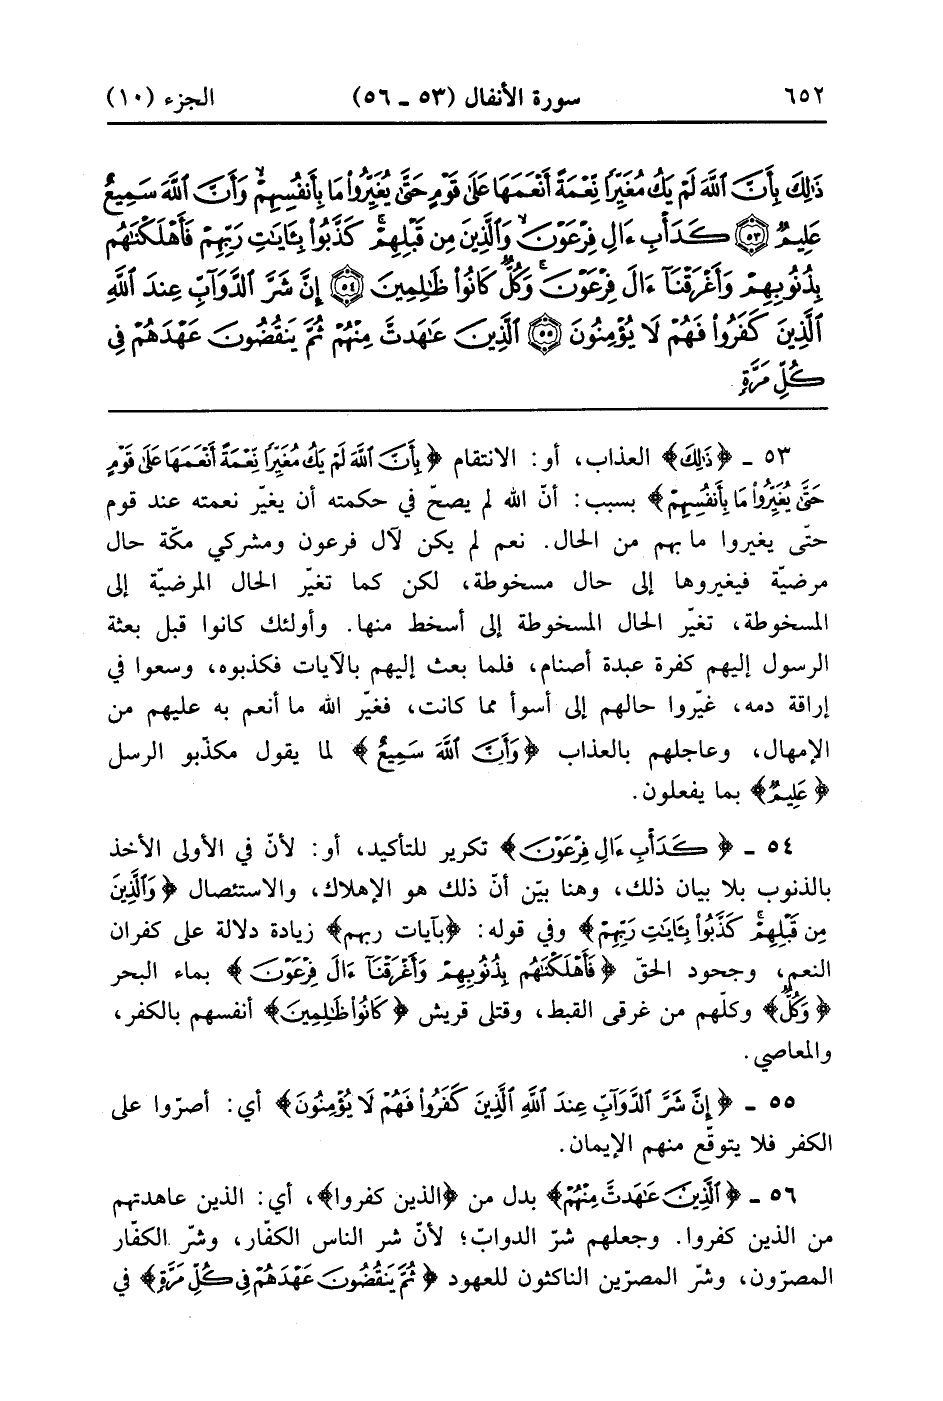 ٦٥٢ سورة الأنفال (٥٣ ـ ٥٦) الجزء (١٠)
ذَٰلِكَ بِأَنَّ ٱللَّهَ لَمْ يَكُ مُغَيِّرًا نِّعْمَةً أَنْعَمَهَا عَلَىٰ قَوْمٍ حَتَّىٰ يُغَيِّرُوا۟ مَا بِأَنفُسِهِمْ ۙ وَأَنَّ ٱللَّهَ سَمِيعٌ
عَلِيمٌ ۝٥٣ كَدَأْبِ ءَالِ فِرْعَوْنَ ۙ وَٱلَّذِينَ مِن قَبْلِهِمْ ۚ كَذَّبُوا۟ بِـَٔايَٰتِ رَبِّهِمْ فَأَهْلَكْنَٰهُم
بِذُنُوبِهِمْ وَأَغْرَقْنَآ ءَالَ فِرْعَوْنَ ۚ وَكُلٌّ كَانُوا۟ ظَٰلِمِينَ ۝٥٤ إِنَّ شَرَّ ٱلدَّوَآبِّ عِندَ ٱللَّهِ
ٱلَّذِينَ كَفَرُوا۟ فَهُمْ لَا يُؤْمِنُونَ ۝٥٥ ٱلَّذِينَ عَٰهَدتَّ مِنْهُمْ ثُمَّ يَنقُضُونَ عَهْدَهُمْ فِى
كُلِّ مَرَّةٍ
٥٣ ـ ﴿ذَٰلِكَ﴾ العذاب، أو: الانتقام ﴿بِأَنَّ ٱللَّهَ لَمْ يَكُ مُغَيِّرًا نِّعْمَةً أَنْعَمَهَا عَلَىٰ قَوْمٍ
حَتَّىٰ يُغَيِّرُوا۟ مَا بِأَنفُسِهِمْ﴾ بسبب: أنّ الله لم يصحّ في حكمته أن يغيّر نعمته عند قوم
حتّى يغيروا ما بهم من الحال. نعم لم يكن لآل فرعون ومشركي مكّة حال
مرضيّة فيغيروها إلى حال مسخوطة، لكن كما تغيّر الحال المرضيّة إلى
المسخوطة، تغيّر الحال المسخوطة إلى أسخط منها. وأولئك كانوا قبل بعثة
الرسول إليهم كفرة عبدة أصنام، فلما بعث إليهم بالآيات فكذبوه، وسعوا في
إراقة دمه، غيّروا حالهم إلى أسوأ مما كانت، فغيّر الله ما أنعم به عليهم من
الإمهال، وعاجلهم بالعذاب ﴿وَأَنَّ ٱللَّهَ سَمِيعٌ﴾ لما يقول مكذّبو الرسل
﴿عَلِيمٌ﴾ بما يفعلون.
٥٤ ـ ﴿كَدَأْبِ ءَالِ فِرْعَوْنَ﴾ تكرير للتأكيد، أو: لأنّ في الأولى الأخذ
بالذنوب بلا بيان ذلك، وهنا بيّن أنّ ذلك هو الإهلاك، والاستئصال ﴿وَٱلَّذِينَ
مِن قَبْلِهِمْ ۚ كَذَّبُوا۟ بِـَٔايَٰتِ رَبِّهِمْ﴾ وفي قوله: ﴿بآيات ربهم﴾ زيادة دلالة على كفران
النعم، وجحود الحقّ ﴿فَأَهْلَكْنَٰهُم بِذُنُوبِهِمْ وَأَغْرَقْنَآ ءَالَ فِرْعَوْنَ﴾ بماء البحر
﴿وَكُلٌّ﴾ وكلّهم من غرقى القبط، وقتلى قريش ﴿كَانُوا۟ ظَٰلِمِينَ﴾ أنفسهم بالكفر،
والمعاصي.
٥٥ ـ ﴿إِنَّ شَرَّ ٱلدَّوَآبِّ عِندَ ٱللَّهِ ٱلَّذِينَ كَفَرُوا۟ فَهُمْ لَا يُؤْمِنُونَ﴾ أي: أصرّوا على
الكفر فلا يتوقّع منهم الإيمان.
٥٦ ـ ﴿ٱلَّذِينَ عَٰهَدتَّ مِنْهُمْ﴾ بدل من ﴿الذين كفروا﴾، أي: الذين عاهدتهم
من الذين كفروا. وجعلهم شرّ الدوابّ؛ لأنّ شر الناس الكفّار، وشرّ الكفّار
المصرّون، وشرّ المصرّين الناكثون للعهود ﴿ثُمَّ يَنقُضُونَ عَهْدَهُمْ فِى كُلِّ مَرَّةٍ﴾ في